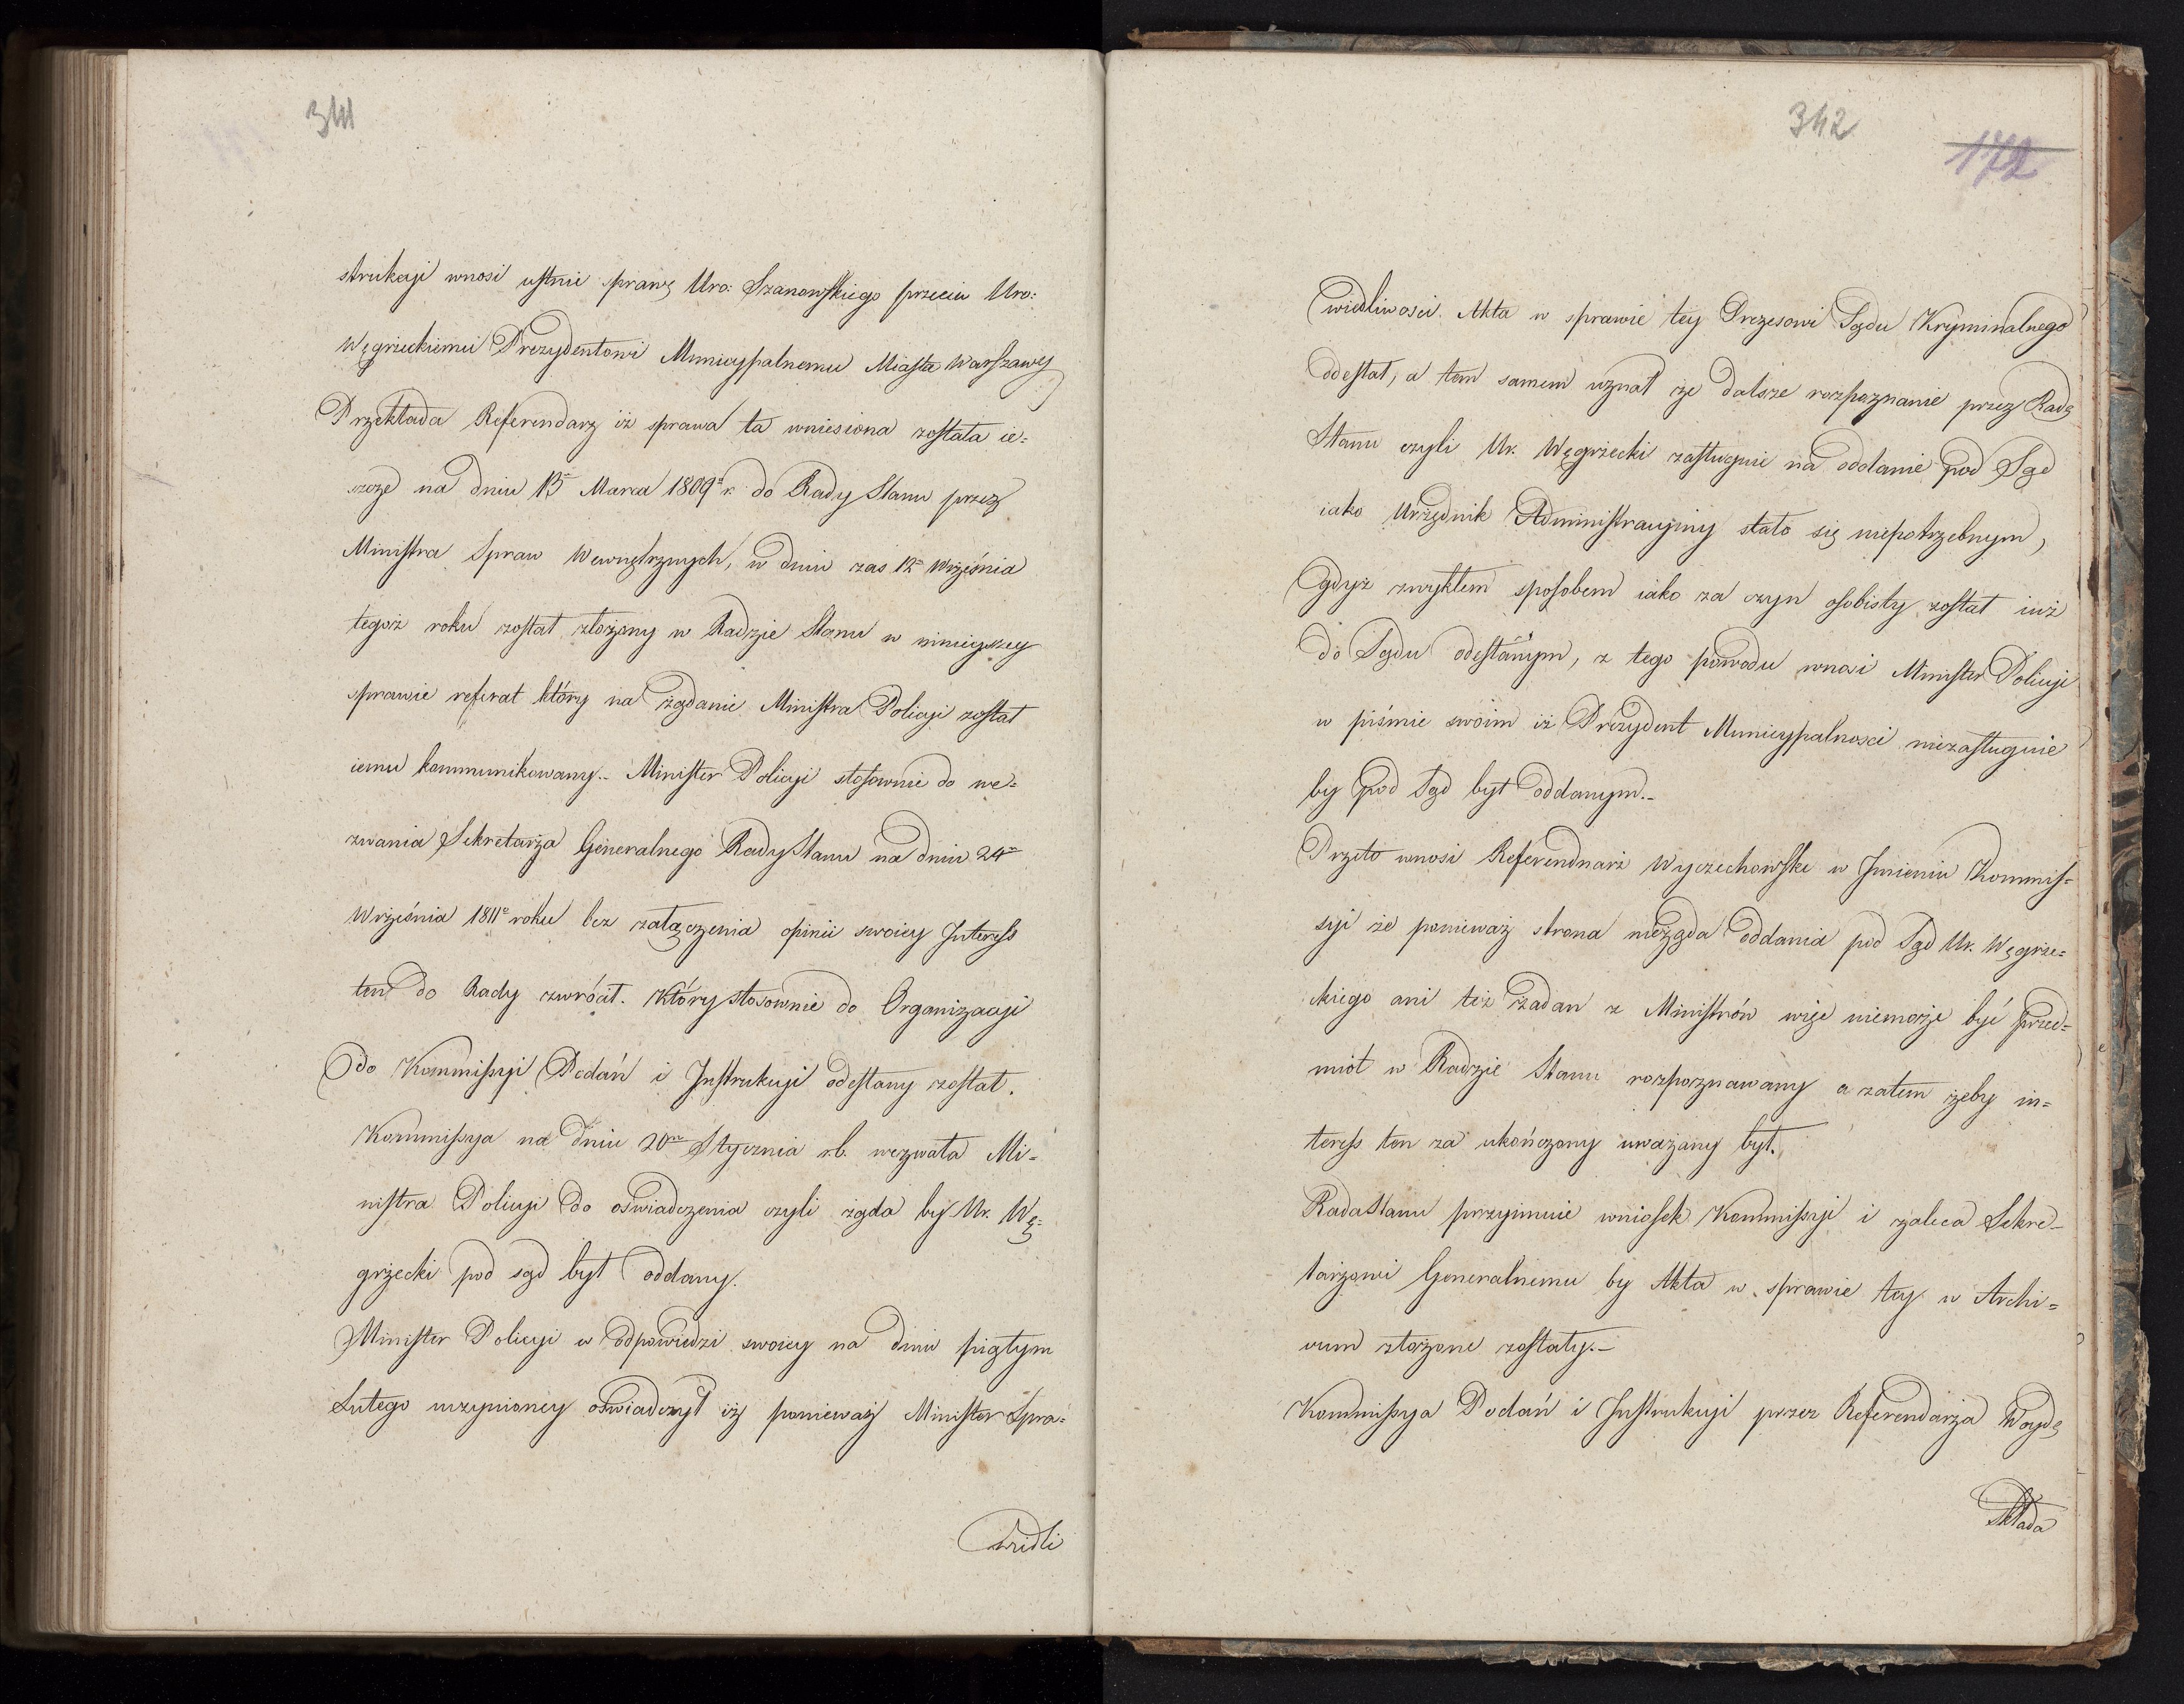 341
strukcyi wnosi ustnie sprawę Uro: Szanowskiego przeciw Uro:
Węgrzeckiemu Prezydentowi Municypalnemu Miasta Warszawy
Przekłada Referendarz iż sprawa ta wniesiona została ie=
szcze na dniu 13º Marca 1809º r. do Rady Stanu przez
Ministra Spraw Wewnętrznych, w dniu zas 12º Września
tegoż roku został złożony w Radzie Stanu w ninieyszey
sprawie referat który na żądanie Ministra Policyi został
iemu kommunikowany.- Minister Policyi stosownie do we=
zwania Sekretarza Generalnego Rady Stanu na dniu 24º
Września 1811º roku bez załączenia opinii swoiey Interess
ten do Rady zwrócił. Który stosownie do Organizacyi
do Kommissyi Podań i Instrukcyi odesłany został.
Kommissya na dniu 20º Stycznia r.b. wezwała Mi=
nistra Policyi do oświadczenia czyli żąda by Ur. Wę=
grzecki pod sąd był oddany.
Minister Policyi w odpowiedzi swoiey na dniu piątym
Lutego uczynioney oświadczył iż ponieważ Minister Spra=
wiedli
342
172
wiedliwosci Akta w sprawie tey Prezesowi Sądu Kryminalnego
odesłał, a tem samem uznał że dalsze rozpoznanie przez Radę
Stanu czyli Ur. Węgrzecki zasługuie na oddanie pod Sąd
iako Urzędnik Administracyiny stało się niepotrzebnym,
gdyż zwykłem sposobem iako za czyn osobisty został iuż
do Sądu odesłanym, z tego powodu wnosi Minister Policyi
w piśmie swoim iż Prezydent Municypalnosci niezasługuie
by pod Sąd był oddanym.-
Przeto wnosi Referendarz Wyczechowski w Imieniu Kommis=
syi że ponieważ strona nieżąda oddania pod Sąd Ur. Węgrze=
ckiego ani też żaden z Ministrów więc niemoże być przed=
miot w Radzie Stanu rozpoznawany a zatem żeby in=
teress ten za ukończony uważany był.
Rada Stanu przyimuie wniosek Kommissyi i zaleca Sekre-
tarzowi Generalnemu by Akta w sprawie tey w Archi=
vum złożone zostały.-
Kommissya Podań i Instrukcyi przez Referendarza Woydę
składa